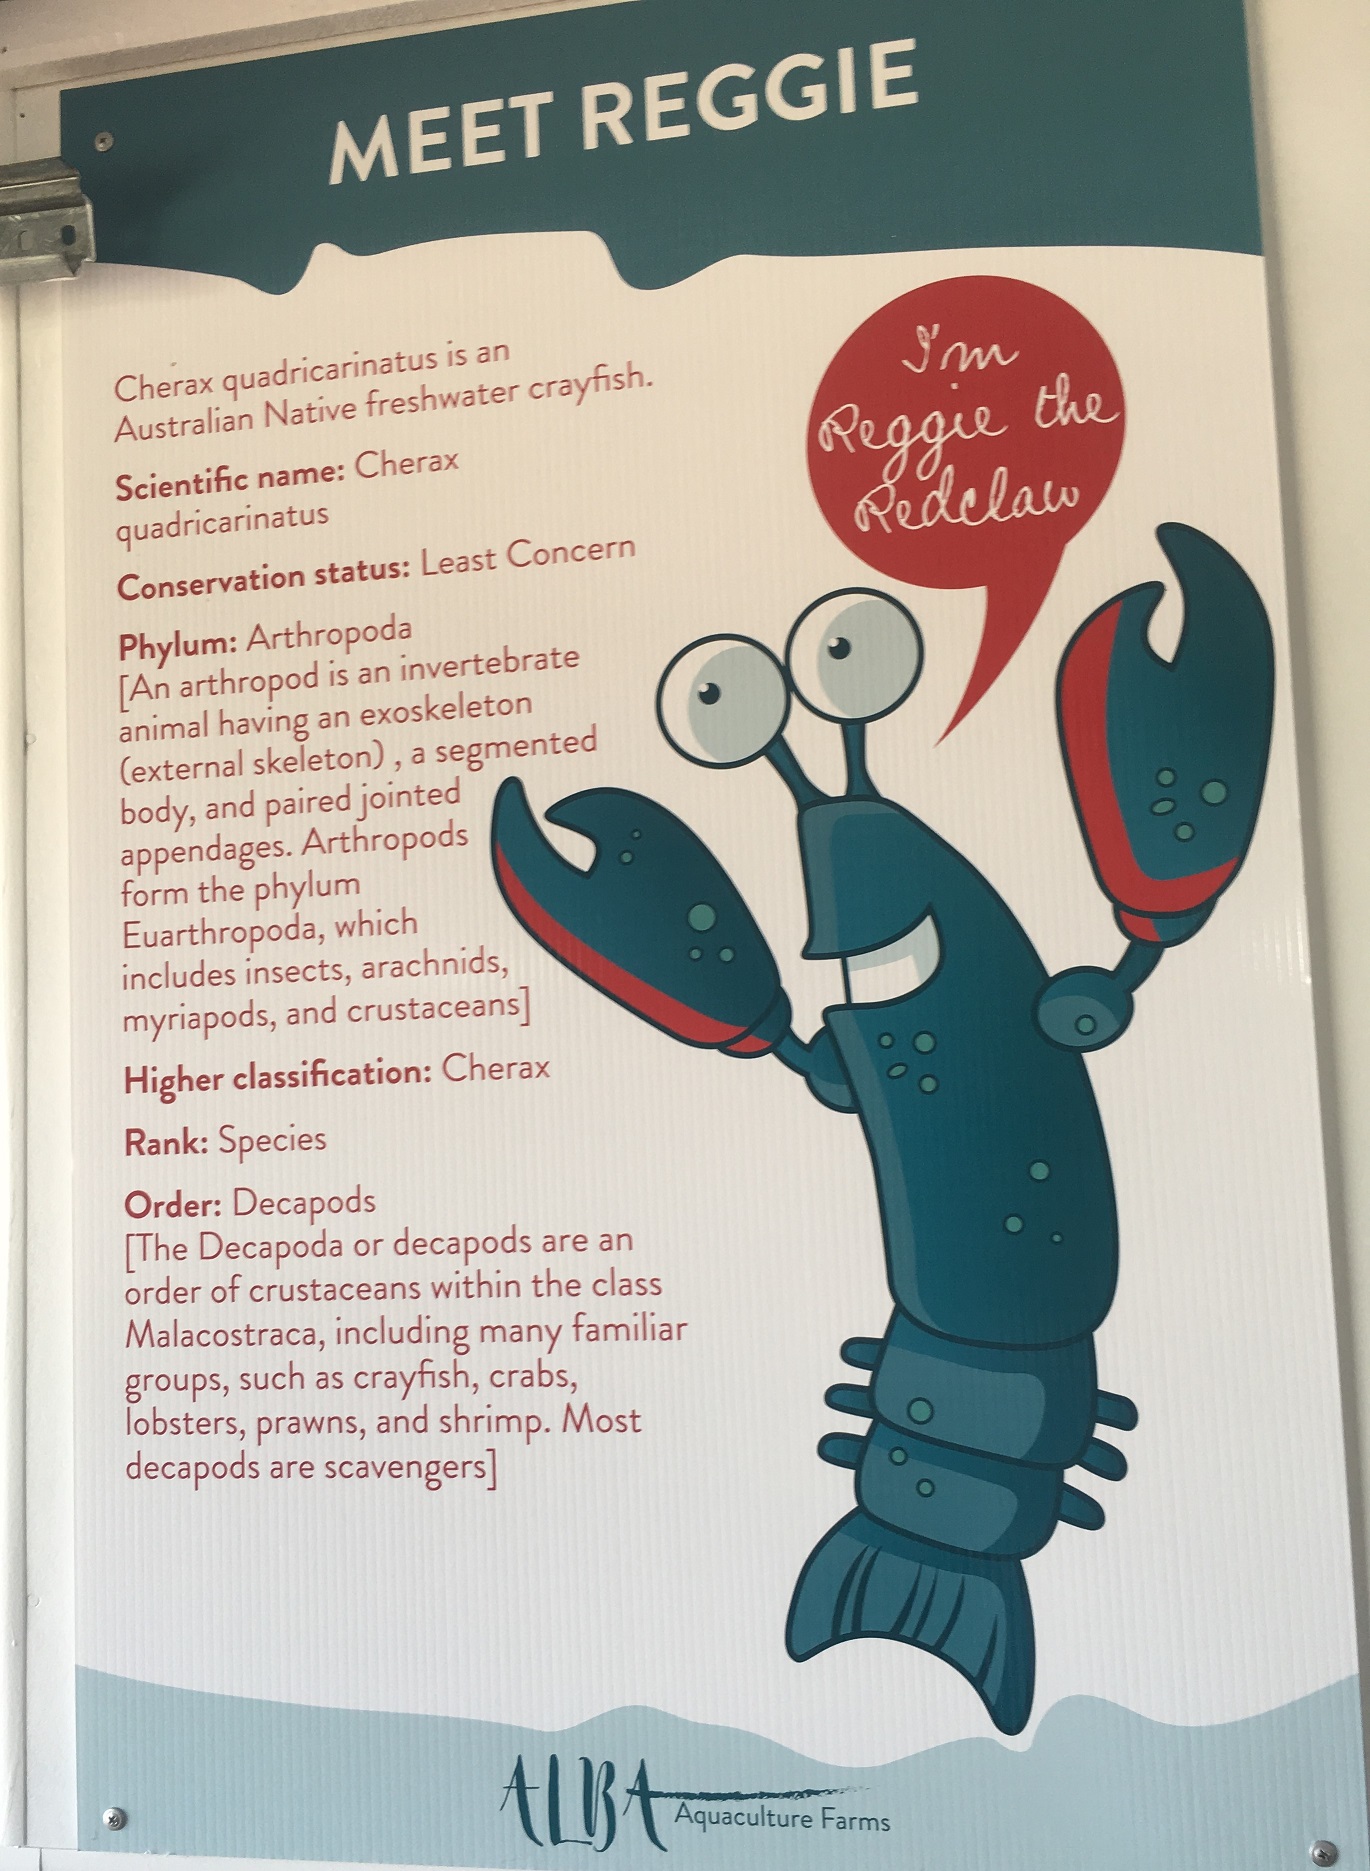 MEET REGGIE
I'm
Reggie the
Redclaw
Cherax quadricarinatus is an
Australian Native freshwater crayfish.
Scientific name: Cherax
quadricarinatus
Conservation status: Least Concern
Phylum: Arthropoda
[An arthropod is an invertebrate
animal having an exoskeleton
(external skeleton) , a segmented
body, and paired jointed
appendages. Arthropods
form the phylum
Euarthropoda, which
includes insects, arachnids,
myriapods, and crustaceans]
Higher classification: Cherax
Rank: Species
Order: Decapods
[The Decapoda or decapods are an
order of crustaceans within the class
Malacostraca, including many familiar
groups, such as crayfish, crabs,
lobsters, prawns, and shrimp. Most
decapods are scavengers]
ALBA
Aquaculture Farms